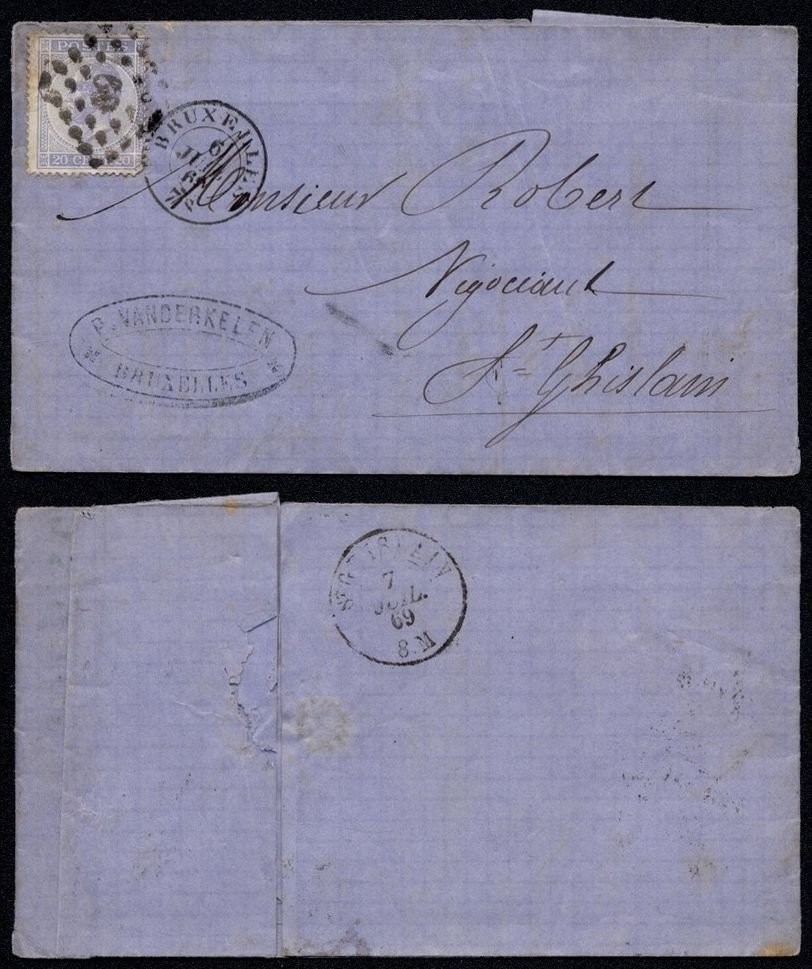 POSTES
20 CENT. 20
BRUXELLES
6
JUIL
69
Monsieur Robert
Négociant
St Ghislain
P. VANDERKELEN
BRUXELLES
ST GHISLAIN
7
JUIL.
69
8 M